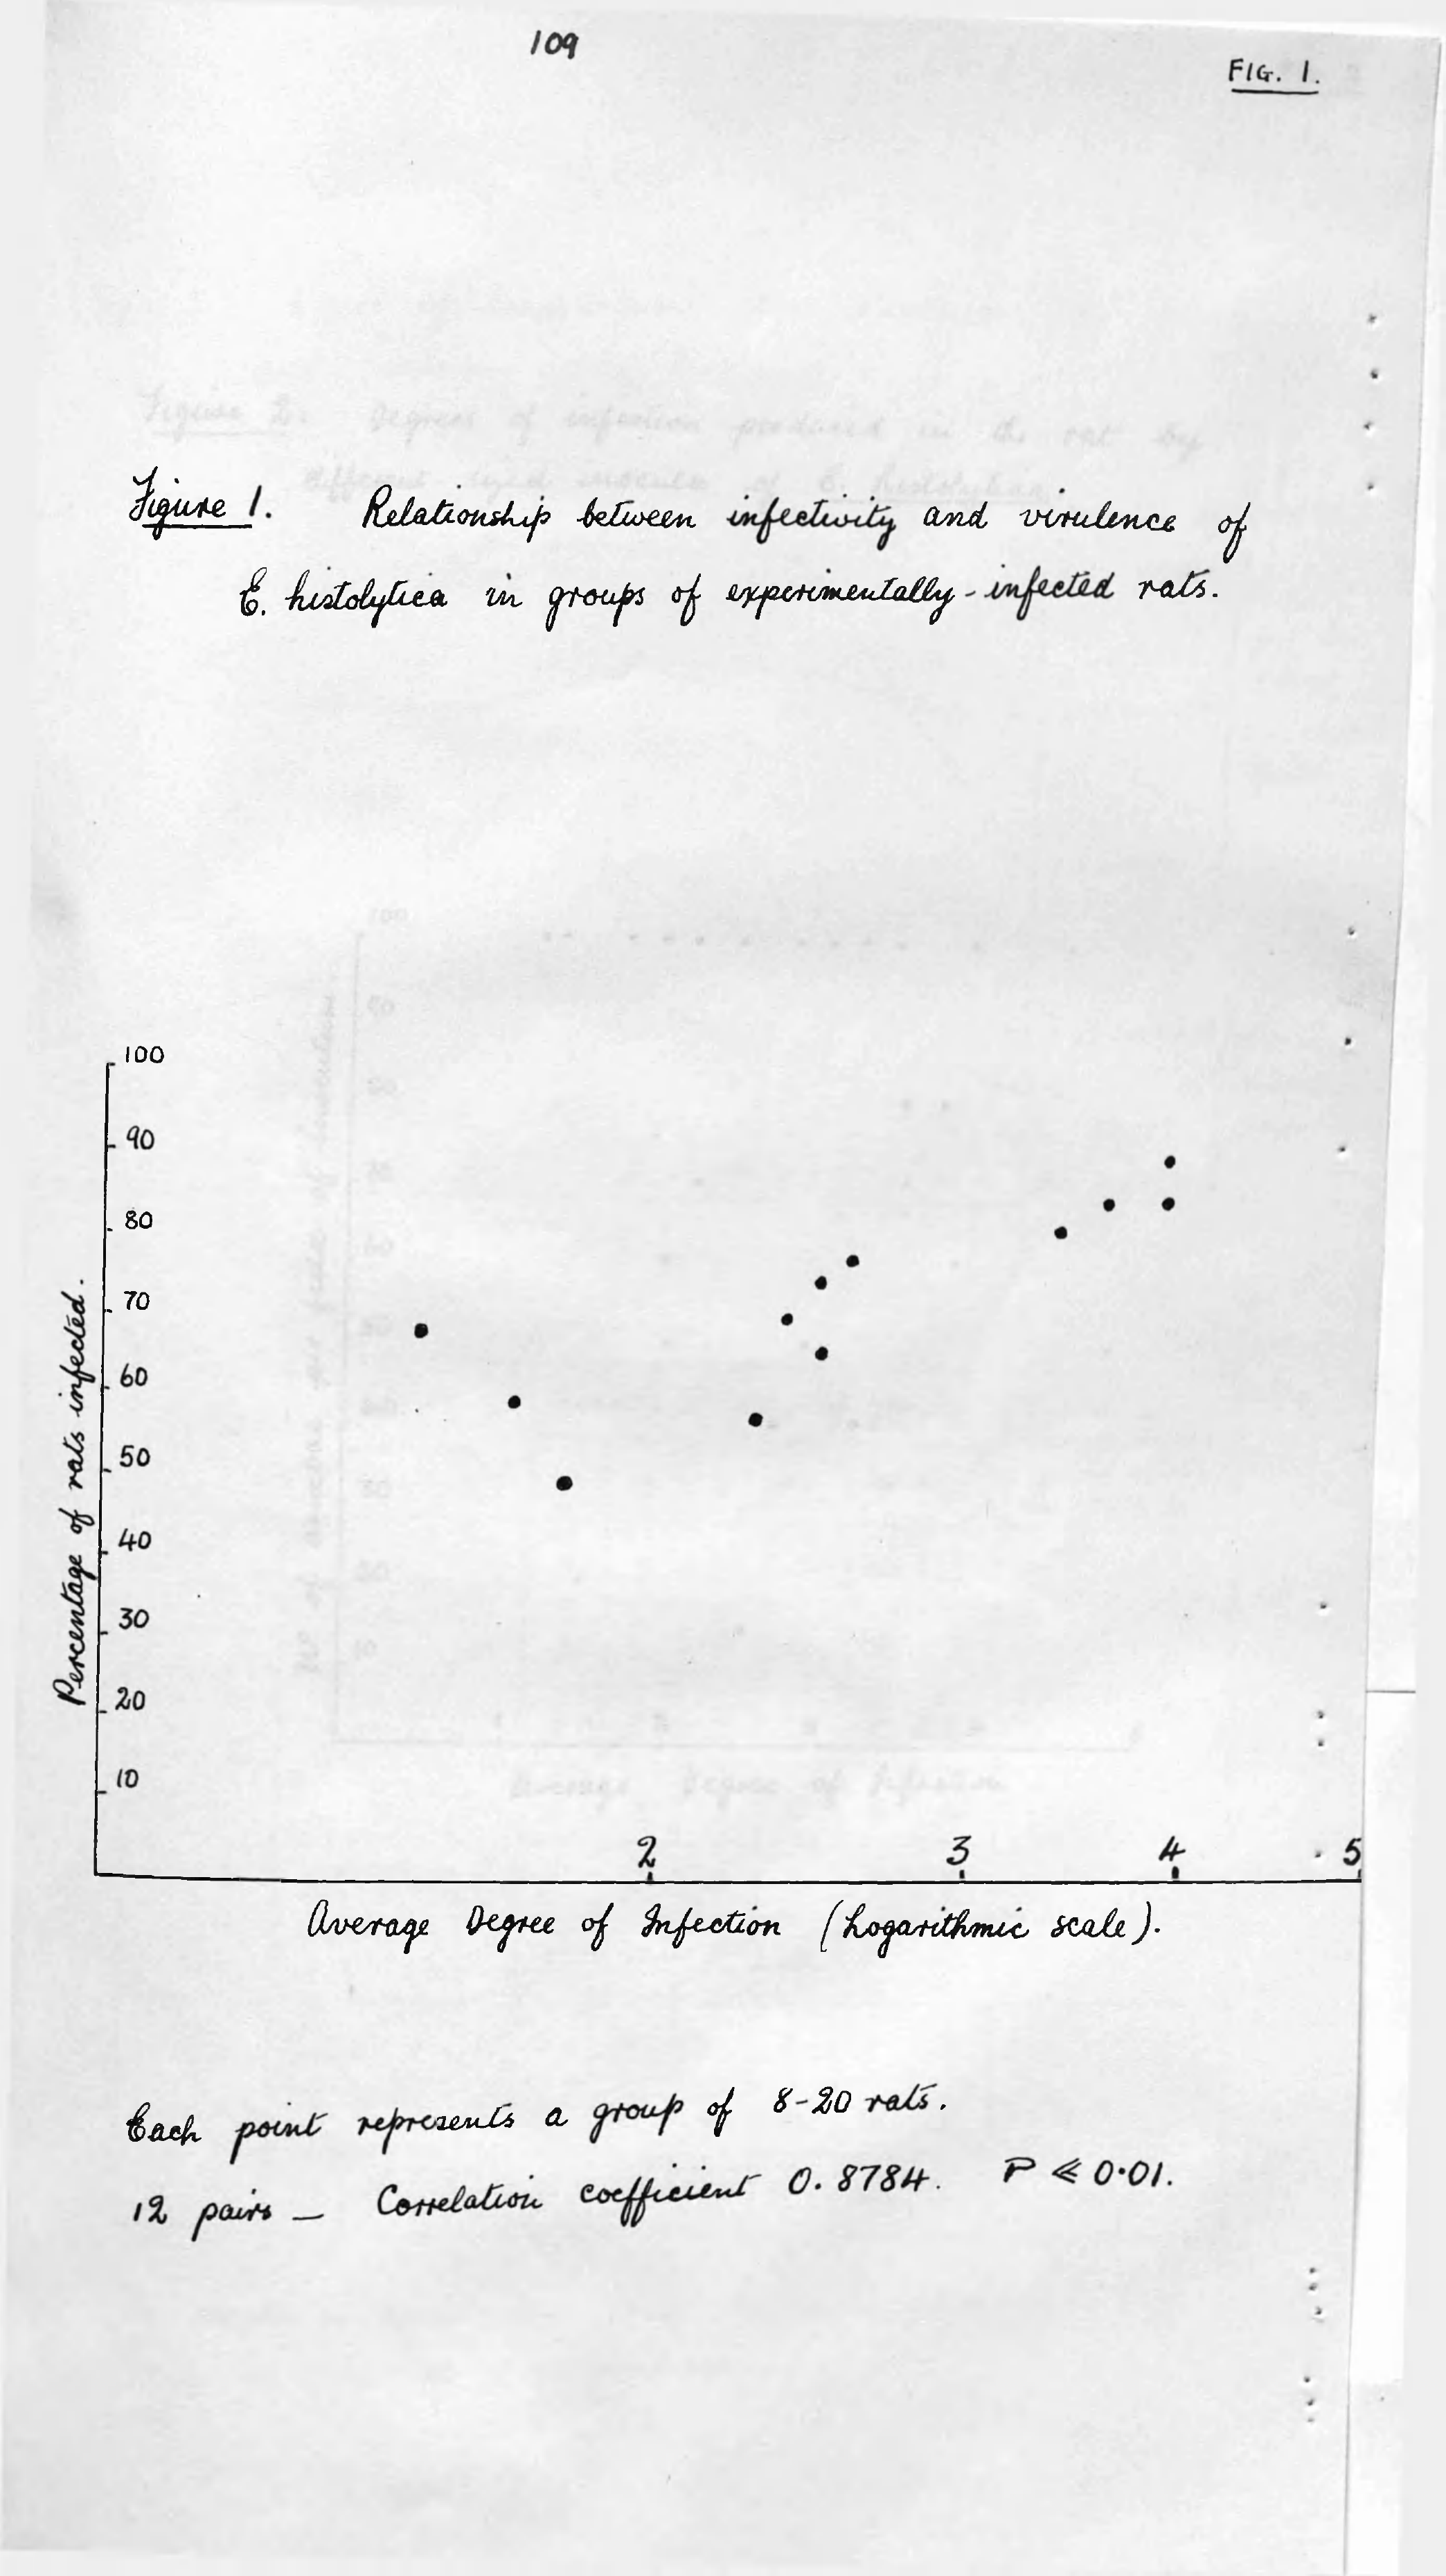 109
FIG. 1.
Figure 1. Relationship between infectivity and virulence of
E. histolytica in groups of experimentally-infected rats.
100
90
80
70
60
50
40
30
20
10
Percentage of rats infected.
2 3 4 5
Average Degree of Infection (Logarithmic scale).
Each point represents a group of 8-20 rats.
12 pairs — Correlation coefficient 0.8784. P ≪ 0·01.